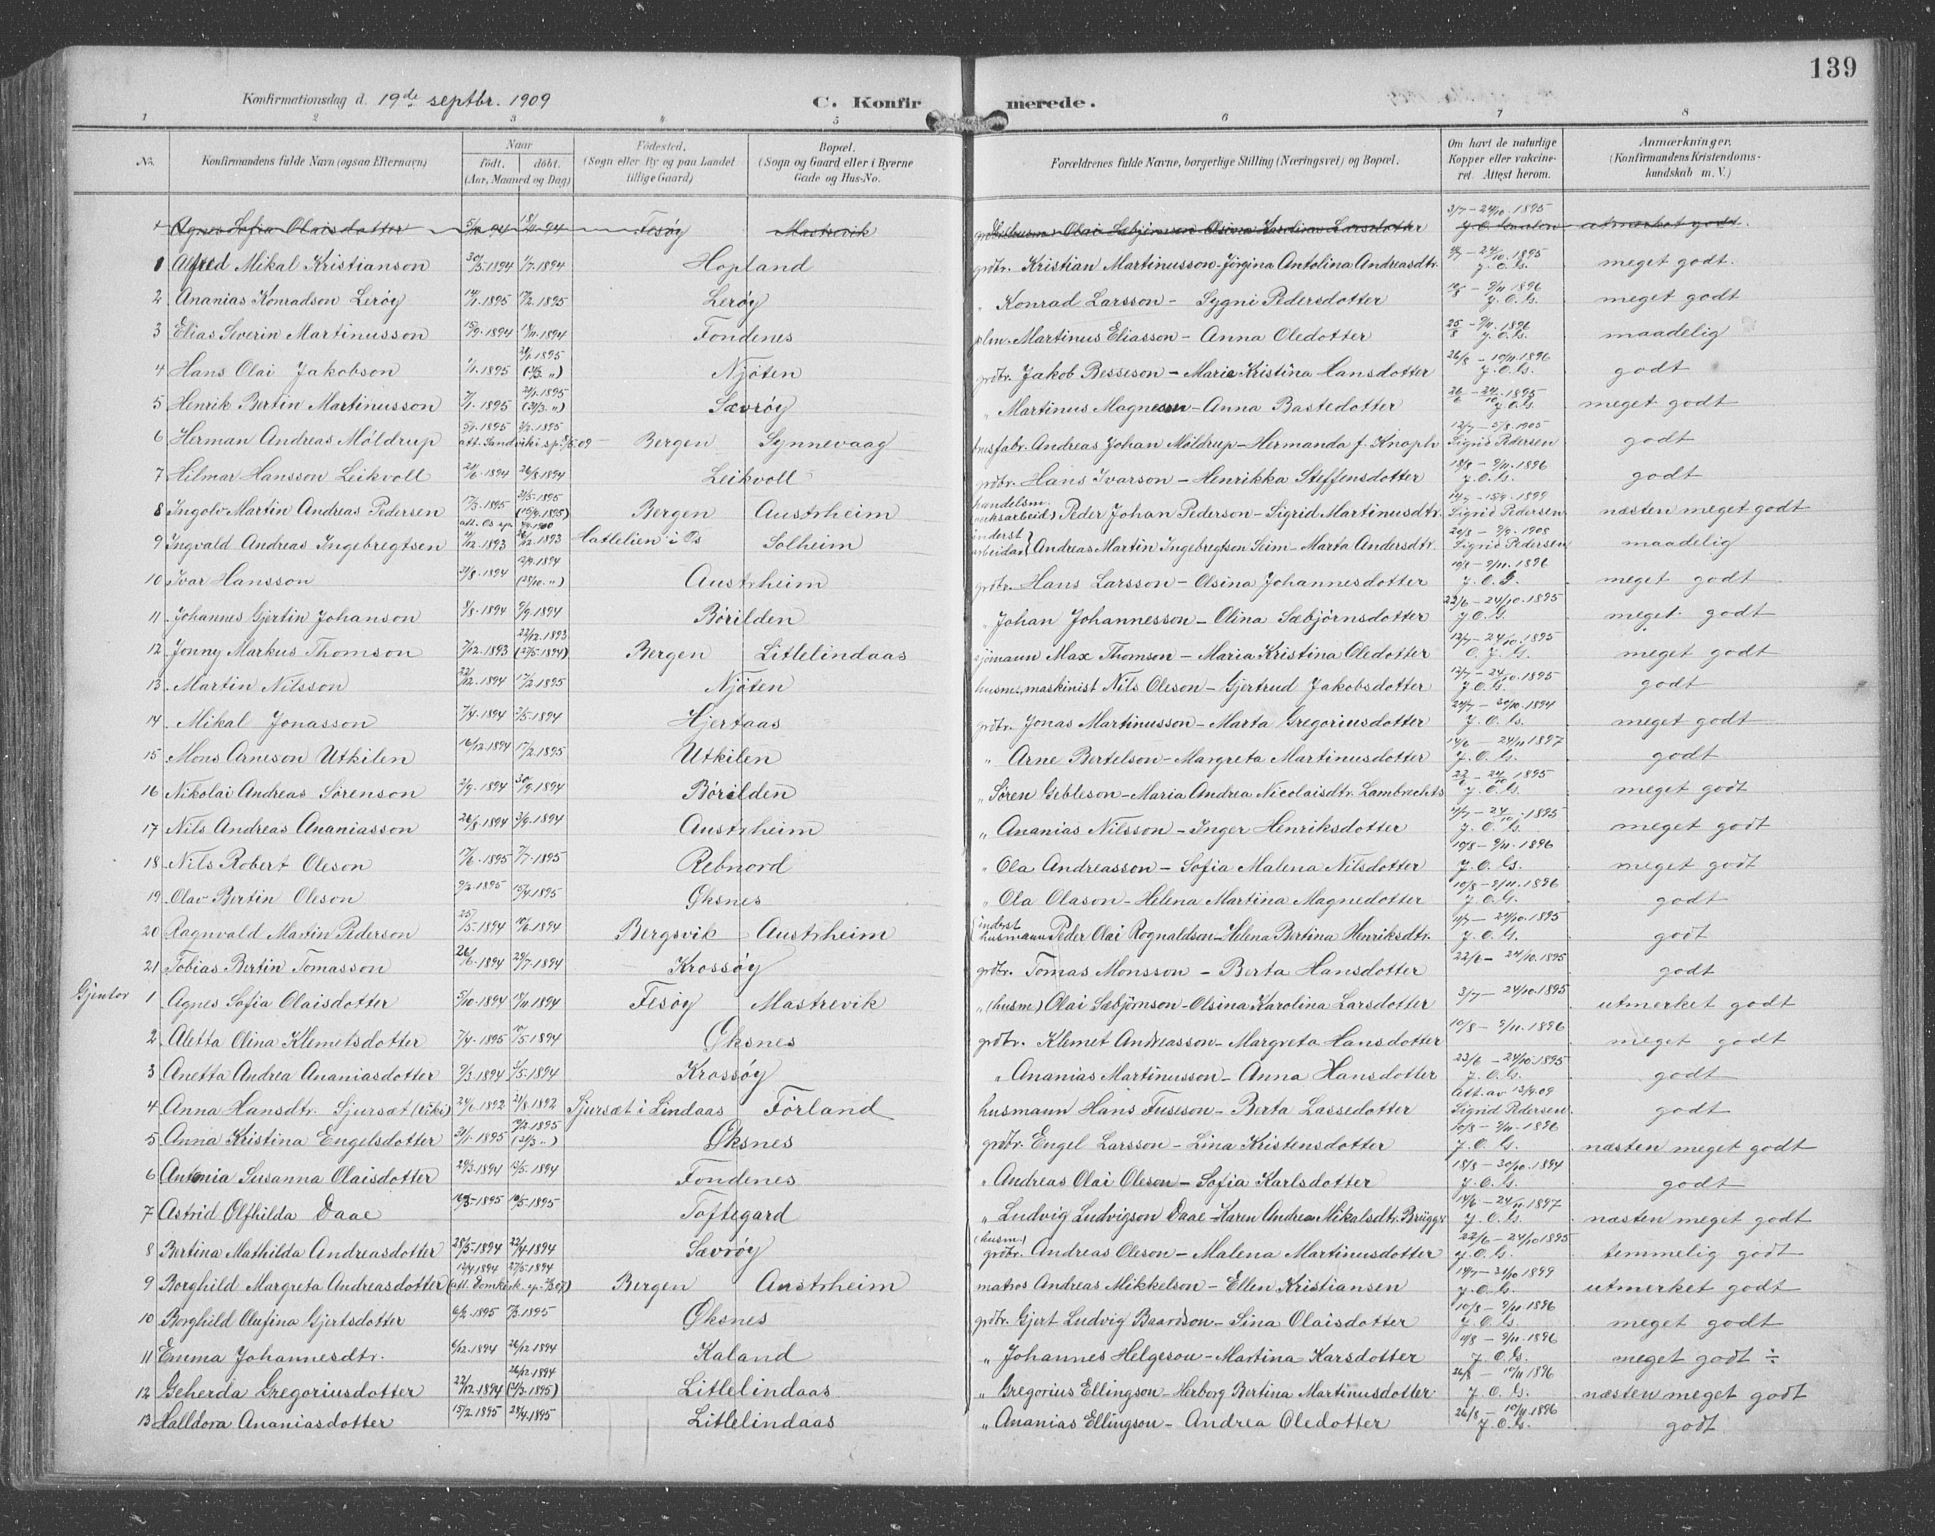 139
Konfirmationsdag d. 19de septbr. 1909 C. Konfir merede.
1 2 3 4 5 6 7 8
No. Konfirmandens fulde Navn (ogsaa Efternavn) Naar født. døbt. (Aar, Maaned og Dag) Fødested. (Sogn eller By og paa Landet tillige Gaard) Bopæl. (Sogn og Gaard eller i Byerne Gade og Hus-No. Forældrenes fulde Navne, borgerlige Stilling (Næringsvei) og Bopæl. Om havt de naturlige Kopper eller vakcineret. Attest herom. Anmærkninger. (Konfirmandens Kristendomskundskab m. V.)
Agnes Sofia Olaisdotter 5/10 94 18/11 94 Fesøy Mastrevik Olai Sæbjørnson Olsina Karolina Larsdotter 3/7 – 24/10 1895 utmerket godt.
1 Alfred Mikal Kristianson 30/5 1894 1/7 1894 Hopland grdbr. Kristian Martinusson – Jørgina Antolina Andreasdtr. 24/10 1895 J.O.G. meget godt.
2 Ananias Konradson Lerøy 14/1 1895 17/2 1895 Lerøy " Konrad Larsson – Sygni Pedersdotter 10/8 – 9/11 1896 J.O.G. meget godt
3 Elias Severin Martinusson 15/9 1894 18/11 1894 Fondenes Martinus Eliasson – Anna Oledotter 25/8 – 9/11 1896 J.O.G. maadelig
4 Hans Olai Jakobson 1/1 1895 1895 Njøten grdbr. Jakob Besseson – Maria Kristina Hansdotter 26/8 – 10/11 1896 J.O.G. godt
5 Henrik Bertin Martinusson 1/1 1895 1895 (31/3 ") Sævrøy " Martinus Magneson – Anna Bastedotter 26/6 – 24/10 1895 J.O.G. meget godt
6 Herman Andreas Møldrup 1895 1895 att. Sandviki sp. Bergen Synnevaag Andreas Johan Møldrup – Hermanda f. Knoph 12/7 – 5/8 1905 Sigrid Pedersen godt
7 Hilmar Hansson Leikvoll 24/6 1894 26/8 1894 Leikvoll grdbr. Hans Ivarson – Henrikka Steffensdotter 18/8 – 9/11 1896 J.O.G. godt
8 Ingolv Martin Andreas Pedersen 17/3 1895 1895 Bergen Austrheim handelsm. Peder Johan Pederson – Sigrid Martinusdtr. 1899 Sigrid Pedersen næsten meget godt
9 Ingvald Andreas Ingebregtsen 1893 1893 Hatlelien i Os Solheim inderst arbeidar Andreas Martin Ingebregtson Seim – Marta Andersdtr. 1908 Sigrid Pedersen maadelig
10 Ivar Hansson 31/8 1894 1894 (28/10 ") Austrheim grdbr. Hans Larsson – Olsina Johannesdotter 10/8 – 9/11 1896 J.O.G. meget godt
11 Johannes Gjertin Johanson 9/8 1894 9/9 1894 Børilden " Johan Johannesson – Olina Sæbjørnsdotter 22/6 – 24/10 1895 J.O.G. meget godt
12 Jonny Markus Thomson 7/12 1893 22/12 1893 (27/5 1894) Bergen Litlelindaas sjømann Max Thomson – Maria Kristina Oledotter 12/7 – 24/10 1895 J.O.G. meget godt
13 Martin Nilsson 22/12 1894 17/2 1895 Njøten husm. maskinist Nils Oleson – Gjertrud Jakobsdotter 12/7 – 24/10 1895 J.O.G. godt
14 Mikal Jonasson 7/4 1894 3/5 1894 Hjertaas grdbr. Jonas Martinusson – Marta Gregoriusdotter 24/7 – 30/10 1894 J.O.G. meget godt
15 Mons Arneson Utkilen 16/12 1894 17/2 1895 Utkilen " Arne Bertelson – Margreta Martinusdotter 14/6 – 24/11 1897 J.O.G. godt
16 Nikolai Andreas Sørenson 2/9 1894 30/9 1894 Børilden " Søren Gebleson – Maria Andrea Nicolaisdtr. Lambrechts 22/6 – 24/10 1895 J.O.G. meget godt
17 Nils Andreas Ananiasson 26/8 1894 3/9 1894 Austrheim " Ananias Nilsson – Inger Henriksdotter 24/10 1895 J.O.G. meget godt
18 Nils Robert Oleson 17/6 1895 7/7 1895 Rebnord " Ola Andreasson – Sofia Malena Nilsdotter 10/8 – 9/11 1896 J.O.G. meget godt
19 Olav Bertin Oleson 9/2 1895 15/4 1895 Øksnes " Ola Olason – Helena Martina Magnedotter 10/8 – 9/11 1896 J.O.G. godt
20 Ragnvald Martin Pederson 25/5 1894 10/6 1894 Bergsvik Austrheim inderst husmann Peder Olai Rognaldson – Helena Bertina Henriksdtr. 24/10 1895 J.O.G. godt
21 Tobias Bertin Tomasson 26/6 1894 29/7 1894 Krossøy grdbr. Tomas Monsson – Berta Hansdotter 22/6 – 24/10 1895 godt
Gjentor 1 Agnes Sofia Olaisdotter 5/10 1894 18/11 1894 Fesøy Mastrevik " (husm) Olai Sæbjørnson – Olsina Karolina Larsdotter 3/7 – 24/10 1895 utmerket godt
2 Aletta Olina Klemetsdotter 7/4 1895 1894 Øksnes grdbr. Klemet Andreasson – Margreta Hansdotter 10/8 – 9/11 1896 meget godt
3 Anetta Andrea Ananiasdotter 9/3 1894 1/5 1894 Krossøy " Ananias Martinusson – Anna Hansdotter 23/6 – 24/10 1895 J.O.G. godt
4 Anna Hansdtr. Sjursæt (Viki) 24/6 1892 21/8 1892 Sjursæt i Lindaas Førland husmann Hans Fuseson – Berta Lassedotter Att. av 13/9 09 Sigrid Pedersen godt
5 Anna Kristina Engelsdotter 31/1 1895 1895 Øksnes grdbr. Engel Larsson – Lina Kristensdotter 10/8 – 9/11 1896 J.O.G. næsten meget godt
6 Antonia Susanna Olaisdotter 29/3 1894 13/5 1894 Fondenes " Andreas Olai Oleson – Sofia Karlsdotter 18/8 – 30/10 1894 J.O.G. godt
7 Astrid Olfhilda Daae 1895 1895 Toftegard " Ludvig Ludvigson Daae – Karen Andrea Mikalsdtr. Brügger 14/6 – 24/11 1897 J.O.G. næsten meget godt
8 Bertina Mathilda Andreasdotter 1894 1894 Sævrøy (husm.) grdbr. Andreas Oleson – Malena Martinusdotter 22/6 – 24/10 1895 J.O.G. temmelig godt
9 Borghild Margreta Andreasdotter 12/4 1894 27/5 1894 (att. Domkirk. Bergen Austrheim matros Andreas Mikkelson – Ellen Kristiansen 1899 J.O.G. utmerket godt
10 Borghild Olufina Gjertsdotter 6/2 1895 1895 Øksnes grdbr. Gjert Ludvig Baardson – Sina Olaisdotter 10/8 – 9/11 1896 J.O.G. meget godt
11 Emma Johannesdtr. 6/12 1894 26/12 1894 Kaland " Johannes Helgeson – Martina Karsdotter 10/8 – 9/11 1896 J.O.G. meget godt ÷
12 Geherda Gregoriusdotter 22/12 1894 26/12 1894 1895) Litlelindaas " Gregorius Ellingson – Herborg Bertina Martinusdotter 26/8 – 10/11 1896 J.O.G. næsten meget godt
13 Halldora Ananiasdotter 15/2 1895 28/4 1895 Litlelindaas " Ananias Ellingson – Andrea Oledotter 26/8 – 10/11 1896 J.O.G. godt